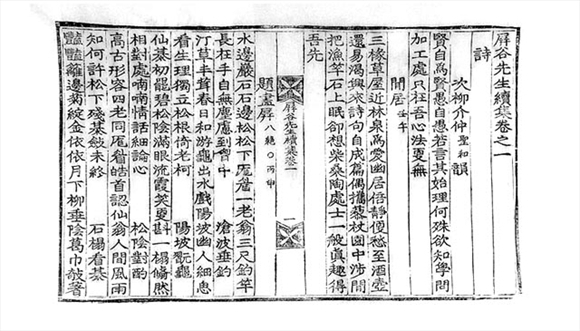 屛谷先生續集卷之一
詩
次柳介仲聖和韻
賢自為賢愚自愚若言其始理何殊欲知學問
加工處只在吾心法更無
閒居壬午
三椽草屋近林泉為愛幽居倍靜便愁至酒壺
還易渴興來詩句自成篇偶攜藜杖園中涉閒
把漁竿石上眠卻想柴桑陶處士一般眞趣得
吾先
屛谷先生續集卷一 一
題畫屛 八絶○丙申
水邊巖石石邊松松下厖眉一老翁三尺釣竿
長在手自無塵慮到胷中 滄波垂釣
汀草丰茸春日和游龜出水戲陽坡幽人細思
看生理獨立松根倚老柯 陽坡翫龜
仙棊初罷碧松陰滿眼流霞笑更斟一榻翛然
相對處喃喃情話細論心 松陰對酌
高古形容四老同厖眉皓首認仙翁人間風雨
知何許松下殘棊敲未終 石榻看棊
豔豔籬邊菊綻金依依月下柳垂陰葛巾欹著